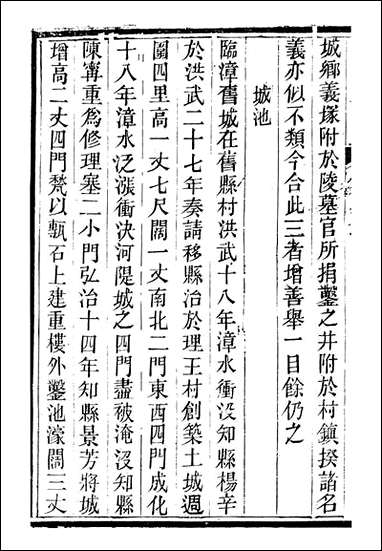 城鄉義塚附於陵墓官所捐鑿之井附於村鎮揆諸名
義亦似不類今合此三者增善舉一目餘仍之
城池
臨漳舊城在舊縣村洪武十八年漳水衝沒知縣楊辛
於洪武二十七年奏請移縣治於理王村創築土城週
圍四里高一丈七尺闊一丈南北二門東西四門成化
十八年漳水泛漲衝決河隄城之四門盡破淹沒知縣
陳寗重為修理塞二小門弘治十四年知縣景芳將城
增高二丈四門甃以甎石上建重樓外鑿池濠闊三丈